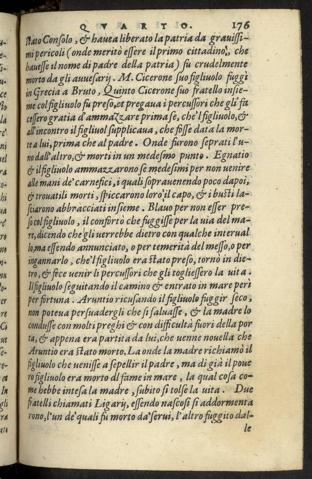 QVARTO. 176
stato Consolo, & haueа liberato la patria da grauissi-
mi pericoli (onde meritò essere il primo cittadino, che
hauesse il nome di padre della patria) fu crudelmente
morto da gli auuersarij. M. Cicerone suo figliuolo fuggì
in Grecia a Bruto, Quinto Cicerone suo fratello insie-
me col figliuolo fu preso, et pregaua i percussori che gli fa
cessero gratia d'ammazzare prima se, che'l figliuolo, &
all'incontro il figliuol supplicaua, che fosse data la mor-
te a lui, prima che al padre. Onde furono seprati l'u-
no dall'altro, & morti in un medesimo punto. Egnatio
& il figliuolo ammazzarono se medesimi per non uenire
alle mani de' carnefici, i quali soprauenendo poco dapoi,
& trouatili morti, spiccarono loro il capo, & i busti la-
sciarono abbracciati insieme. Blauo per non esser pre-
so col figliuolo, il confortò che fuggisse per la uia del ma-
re, dicendo che gli uerrebbe dietro con qualche interual
lo, ma essendo annunciato, o per temerità del messo, o per
ingannarlo, che'l figliuolo era stato preso, tornò in die-
tro, & fece uenir li percussori che gli togliessero la uita.
Il figliuolo seguitando il camino & entrato in mare perì
per fortuna. Aruntio ricusando il figliuolo fuggir seco,
non poteua persuadergli che si saluasse, & la madre lo
condusse con molti preghi & con difficultà fuori della por
ta, & appena era partita da lui, che uenne nouella che
Aruntio era stato morto. La onde la madre richiamò il
figliuolo che uenisse a sepellir il padre, ma di già il poue
ro figliuolo era morto di fame in mare, la qual cosa co-
me hebbe intesa la madre, subito si tolse la uita. Due
fratelli chiamati Ligarij, essendo nascosi si addormenta
rono, l'un de' quali fu morto da' serui, l'altro fuggito dal-
le